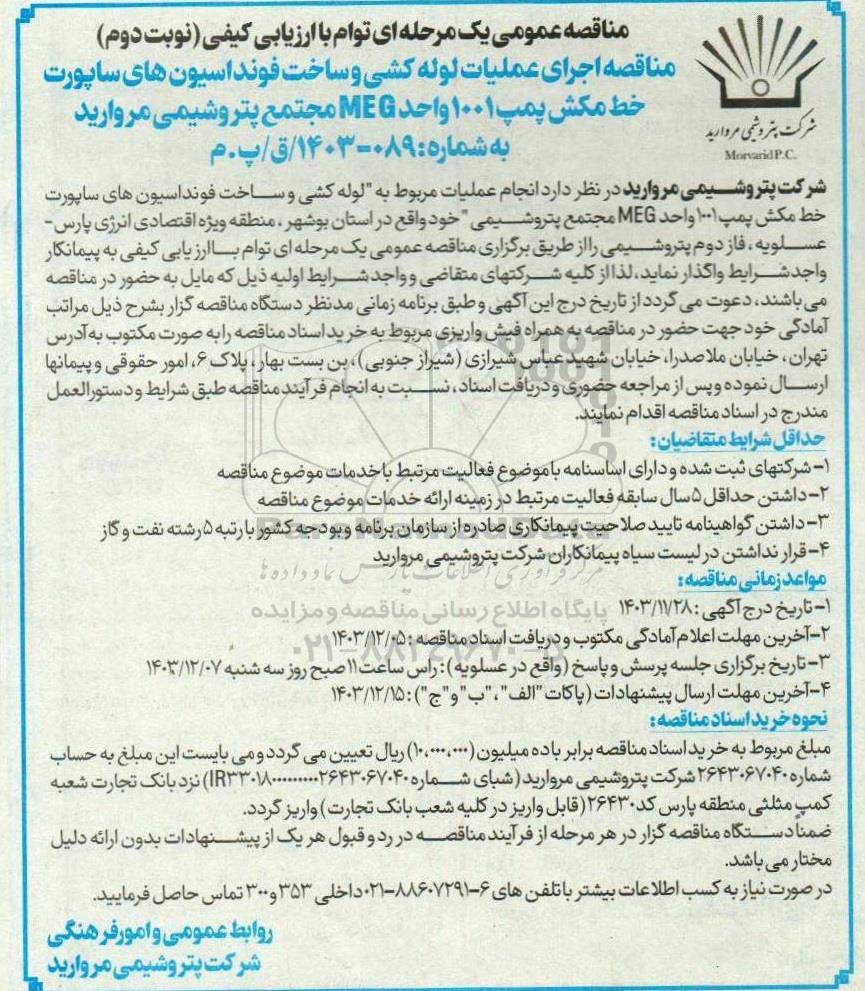 مناقصه عمومی یک مرحله ای توام با ارزیابی کیفی (نوبت دوم)
مناقصه اجرای عملیات لوله کشی و ساخت فونداسیون های ساپورت
خط مکش پمپ ۱۰۰۱ واحد MEG مجتمع پتروشیمی مروارید
به شماره: ۰۸۹-۱۴۰۳/ق/پ.م
شرکت پتروشیمی مروارید
Morvarid P.C.
شرکت پتروشیمی مروارید در نظر دارد انجام عملیات مربوط به "لوله کشی و ساخت فونداسیون های ساپورت
خط مکش پمپ ۱۰۰۱ واحد MEG مجتمع پتروشیمی" خود واقع در استان بوشهر، منطقه ویژه اقتصادی انرژی پارس-
عسلویه، فاز دوم پتروشیمی را از طریق برگزاری مناقصه عمومی یک مرحله ای توام با ارزیابی کیفی به پیمانکار
واجد شرایط واگذار نماید، لذا از کلیه شرکتهای متقاضی و واجد شرایط اولیه ذیل که مایل به حضور در مناقصه
می باشند، دعوت می گردد از تاریخ درج این آگهی و طبق برنامه زمانی مدنظر دستگاه مناقصه گزار بشرح ذیل مراتب
آمادگی خود جهت حضور در مناقصه به همراه فیش واریزی مربوط به خرید اسناد مناقصه را به صورت مکتوب به آدرس
تهران، خیابان ملاصدرا، خیابان شهید عباس شیرازی (شیراز جنوبی)، بن بست بهار، پلاک ۶، امور حقوقی و پیمانها
ارسال نموده و پس از مراجعه حضوری و دریافت اسناد، نسبت به انجام فرآیند مناقصه طبق شرایط و دستورالعمل
مندرج در اسناد مناقصه اقدام نمایند.
حداقل شرایط متقاضیان:
۱- شرکتهای ثبت شده و دارای اساسنامه با موضوع فعالیت مرتبط با خدمات موضوع مناقصه
۲- داشتن حداقل ۵ سال سابقه فعالیت مرتبط در زمینه ارائه خدمات موضوع مناقصه
۳- داشتن گواهینامه تایید صلاحیت پیمانکاری صادره از سازمان برنامه و بودجه کشور با رتبه ۵ رشته نفت و گاز
۴- قرار نداشتن در لیست سیاه پیمانکاران شرکت پتروشیمی مروارید
مواعد زمانی مناقصه:
۱- تاریخ درج آگهی: ۱۴۰۳/۱۱/۲۸
پایگاه اطلاع رسانی مناقصه و مزایده
۲- آخرین مهلت اعلام آمادگی مکتوب و دریافت اسناد مناقصه: ۱۴۰۳/۱۲/۰۵
۰۲۱-۸۸۳۴۹۶۷۰-۵
۳- تاریخ برگزاری جلسه پرسش و پاسخ (واقع در عسلویه): راس ساعت ۱۱ صبح روز سه شنبه ۱۴۰۳/۱۲/۰۷
۴- آخرین مهلت ارسال پیشنهادات (پاکات "الف"، "ب" و "ج"): ۱۴۰۳/۱۲/۱۵
نحوه خرید اسناد مناقصه:
مبلغ مربوط به خرید اسناد مناقصه برابر با ده میلیون (۱۰,۰۰۰,۰۰۰) ریال تعیین می گردد و می بایست این مبلغ به حساب
شماره ۲۶۴۳۰۶۷۰۴۰ شرکت پتروشیمی مروارید (شبای شماره IR۳۳۰۱۸۰۰۰۰۰۰۰۰۰۲۶۴۳۰۶۷۰۴۰) نزد بانک تجارت شعبه
کمپ مثلثی منطقه پارس کد ۲۶۴۳۰ (قابل واریز در کلیه شعب بانک تجارت) واریز گردد.
ضمناً دستگاه مناقصه گزار در هر مرحله از فرآیند مناقصه در رد و قبول هر یک از پیشنهادات بدون ارائه دلیل
مختار می باشد.
در صورت نیاز به کسب اطلاعات بیشتر با تلفن های ۶-۸۸۶۰۷۲۹۱-۰۲۱ داخلی ۳۵۳ و ۳۰۰ تماس حاصل فرمایید.
روابط عمومی و امور فرهنگی
شرکت پتروشیمی مروارید